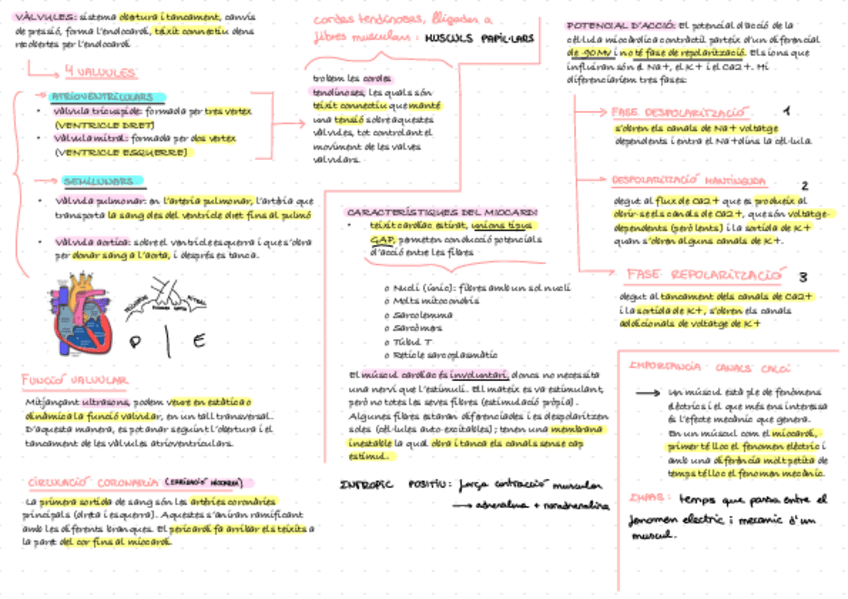 VÀLVULES: sistema obertura i tancament, canvis
de pressió, forma l'endocardi, teixit connectiu dens
recobertes per l'endocardi
4 VALVULES
ATRIOVENTRICULARS
• Vàlvula tricúspide: formada per tres vertex
(VENTRICLE DRET)
• Vàlvula mitral: formada per dos vertex
(VENTRICLE ESQUERRE)
SEMILUNARS
• Vàlvula pulmonar: en l'artèria pulmonar, l'artèria que
transporta la sang des del ventricle dret fins al pulmó
• Vàlvula aortica: sobre el ventricle esquerra i que s'obra
per donar sang a l'aorta, i després es tanca.
D | E
FUNCIÓ VALVULAR
Mitjançant ultrasons, podem veure en estàtica o
dinàmica la funció valvular, en un tall transversal.
D'aquesta manera, es pot anar seguint l'obertura i el
tancament de les vàlvules atrioventriculars.
CIRCULACIÓ CORONARIA
La primera sortida de sang són les artèries coronàries
principals (dreta i esquerra). Aquestes s'aniran ramificant
amb les diferents branques. El pericardi fa arribar els teixits a
la part del cor fins al miocardi.
cordes tendinoses, lligades a
fibres musculars: MUSCULS PAPIL·LARS
trobem les cordes
tendinoses, les quals són
teixit connectiu que manté
una tensió sobre aquestes
vàlvules, tot controlant el
moviment de les valves
valvulars.
CARACTERÍSTIQUES DEL MIOCARDI
• teixit cardíac estriat, unions tipus
GAP, permeten conducció potencials
d'acció entre les fibres
o Nucli (únic): fibres amb un sol nucli
o Molts mitocondris
o Sarcolemma
o Sarcòmers
o Túbul T
o Reticle sarcoplasmàtic
El múscul cardíac és involuntari, doncs no necessita
una nervi que l'estimuli. Ell mateix es va estimulant,
però no totes les seves fibres (estimulació pròpia).
Algunes fibres estaran diferenciades i es despolaritzen
soles (cèl·lules auto excitables); tenen una membrana
inestable la qual obra i tanca els canals sense cap
estimul.
INTROPIC POSITIU: força contracció muscular
→ adrenalina + noradrenalina
POTENCIAL D'ACCIÓ: El potencial d'acció de la
cèl·lula miocàrdica contràctil parteix d'un diferencial
de -90 MV i no té fase de repolarització. Els ions que
influiran són el Na+, el K+ i el Ca2+. Hi
diferenciaríem tres fases:
FASE DESPOLARITZACIÓ 1
s'obren els canals de Na+ voltatge
dependents i entra el Na+ dins la cèl·lula.
DESPOLARITZACIÓ MANTINGUDA 2
degut al flux de Ca2+ que es produeix al
obrir-se els canals de Ca2+, que són voltatge-
dependents (però lents) i la sortida de K+
quan s'obren alguns canals de K+.
FASE REPOLARITZACIÓ 3
degut al tancament dels canals de Ca2+
i la sortida de K+, s'obren els canals
addicionals de voltatge de K+
IMPORTANCIA CANALS CALCI
→ Un múscul està ple de fenòmens
elèctrics i el que més ens interessa
és l'efecte mecànic que genera.
En un múscul com el miocardi,
primer té lloc el fenomen elèctric i
amb una diferència molt petita de
temps té lloc el fenomen mecànic.
IMPAS: temps que passa entre el
fenomen electric i mecanic d'un
muscul.